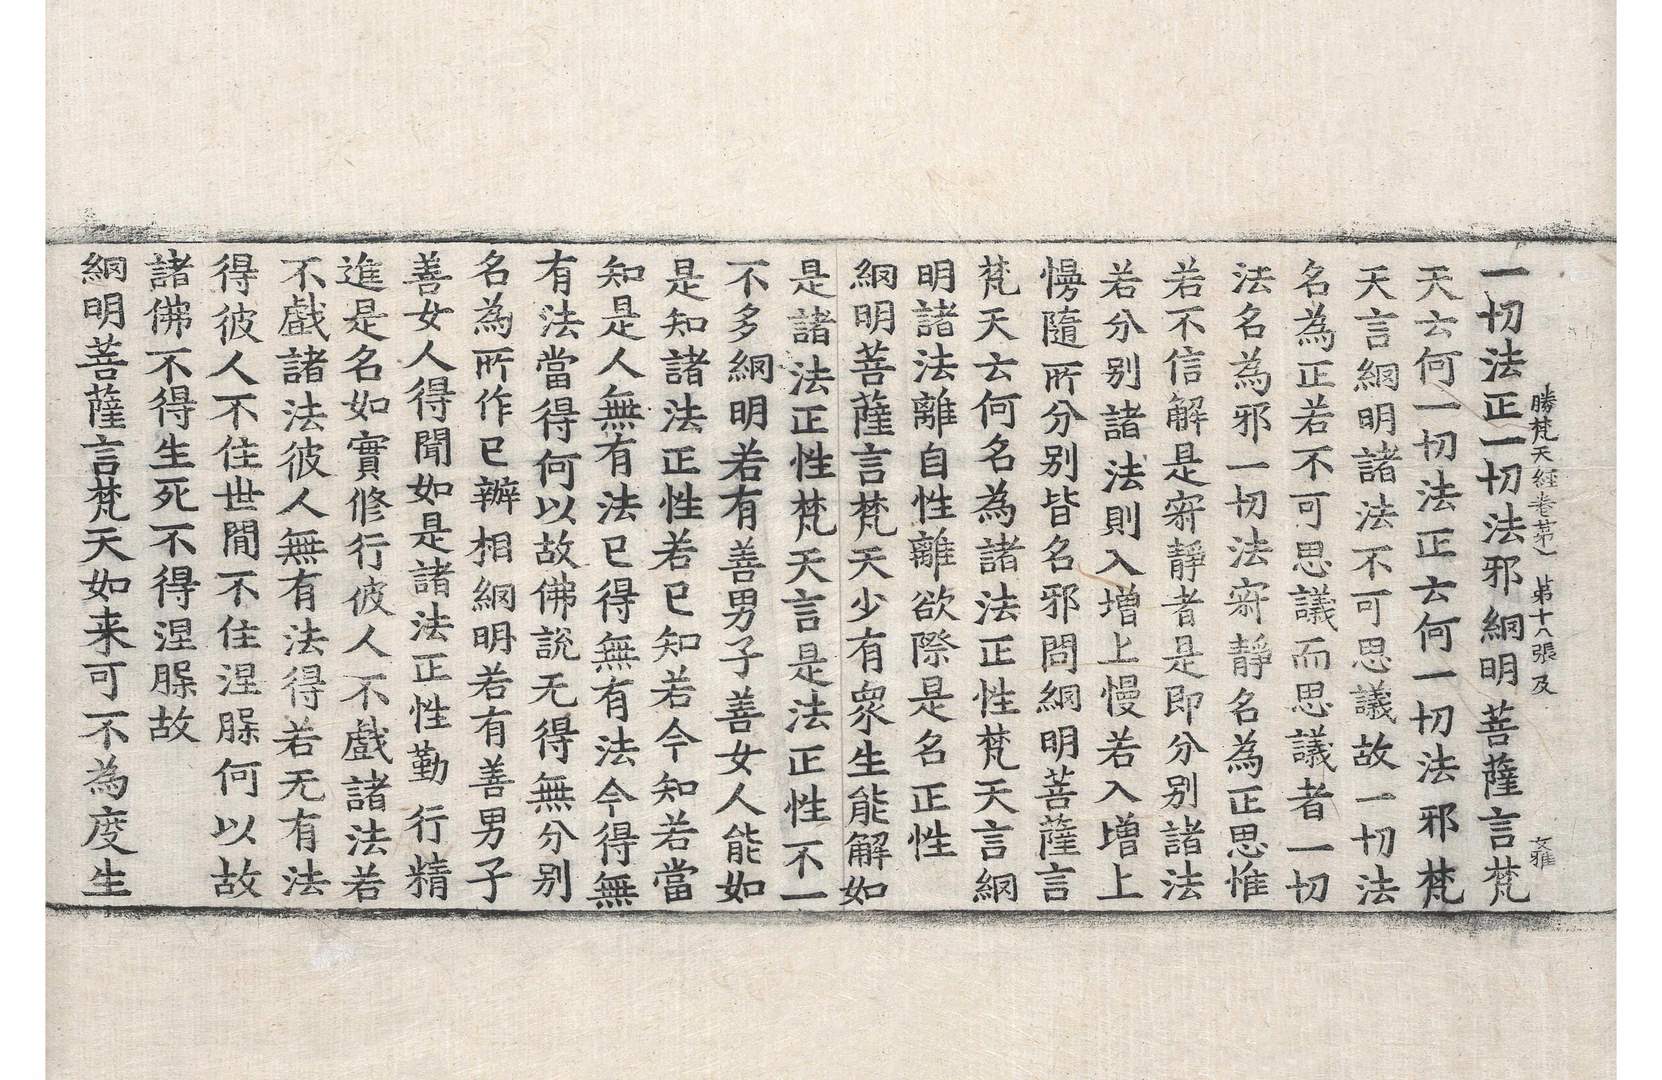 勝梵天經卷苐一　苐十八張　及
文雅
一切法正一切法邪網明菩薩言梵
天云何一切法正云何一切法邪梵
天言網明諸法不可思議故一切法
名為正若不可思議而思議者一切
法名為邪一切法寂靜名為正思惟
若不信解是寂靜者是即分別諸法
若分別諸法則入增上慢若入增上
慢隨所分別皆名邪問網明菩薩言
梵天云何名為諸法正性梵天言網
明諸法離自性離欲際是名正性
網明菩薩言梵天少有衆生能解如
是諸法正性梵天言是法正性不一
不多網明若有善男子善女人能如
是知諸法正性若已知若今知若當
知是人無有法已得無有法今得無
有法當得何以故佛說无得無分別
名為所作已辦相網明若有善男子
善女人得聞如是諸法正性勤行精
進是名如實修行彼人不戲諸法若
不戲諸法彼人無有法得若无有法
得彼人不住世閒不住涅槃何以故
諸佛不得生死不得涅槃故
網明菩薩言梵天如来可不為度生